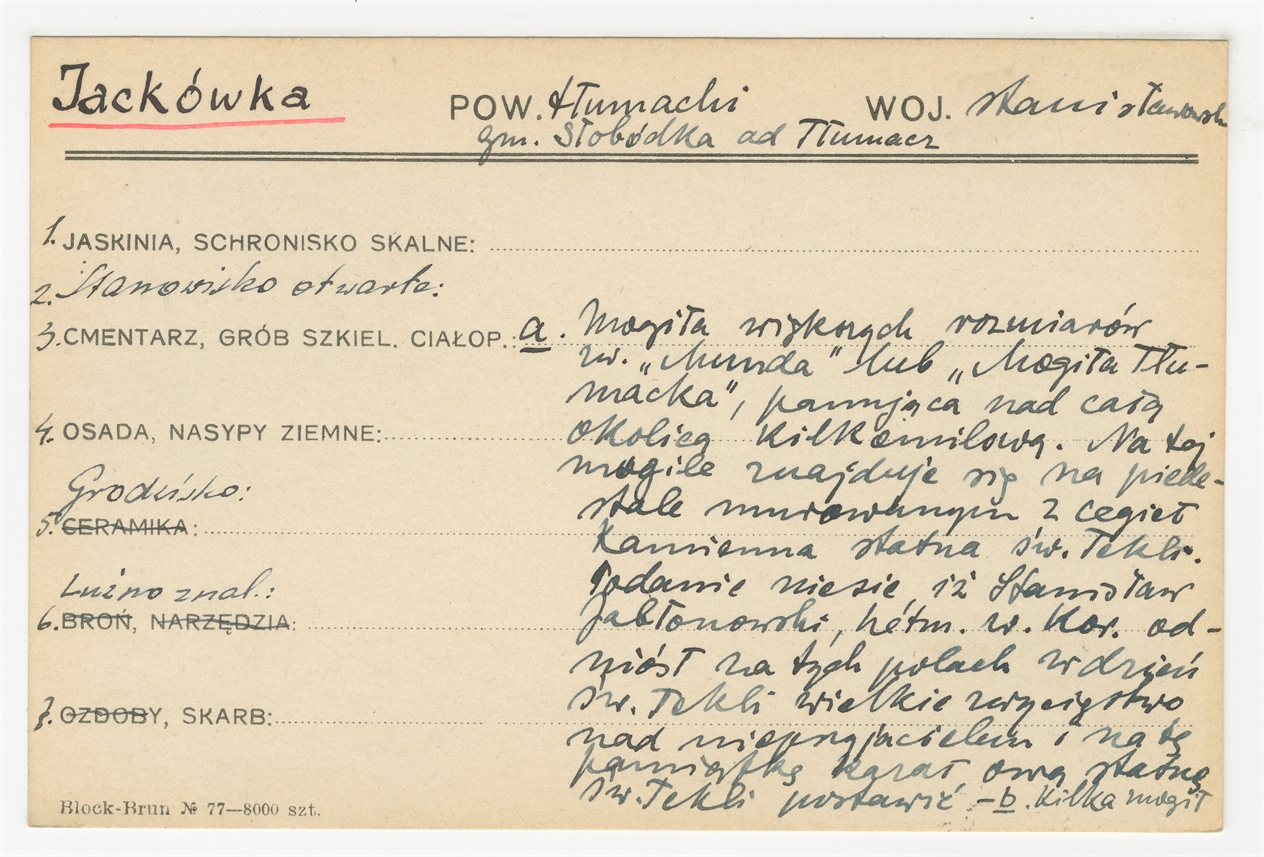 Jackówka
POW. tłumacki WOJ. stanisławowsk
gm. Słobódka ad Tłumacz
1. JASKINIA, SCHRONISKO SKALNE:
2. Stanowisko otwarte:
3. CMENTARZ, GRÓB SZKIEL. CIAŁOP.: a. Mogiła większych rozmiarów
zw. „Munda" lub „Mogiła Tłu-
macka", panująca nad całą
4. OSADA, NASYPY ZIEMNE: okolicą kilkomilową. Na tej
mogile znajduje się na piede-
Grodzisko:
stale murowanym z cegieł
5. CERAMIKA: kamienna statua św. Tekli.
Luźno znal.:
Podanie niesie, iż Stanisław
6. BROŃ, NARZĘDZIA: Jabłonowski, hetm. w. kor. od-
niósł na tych polach w dzień
św. Tekli wielkie zwycięstwo
7. OZDOBY, SKARB: nad nieprzyjacielem i na tę
pamiątkę kazał ową statuę
św. Tekli postawić – b. Kilka mogił
Block-Brun № 77—8000 szt.